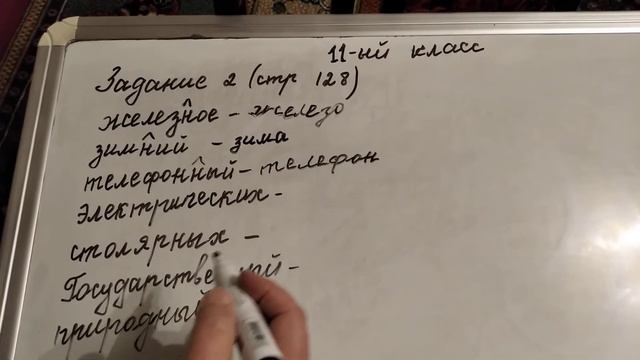 11-ый класс
Задание 2 (стр 128)
железное - железо
зимний - зима
телефонный - телефон
электрических -
столярных -
природный